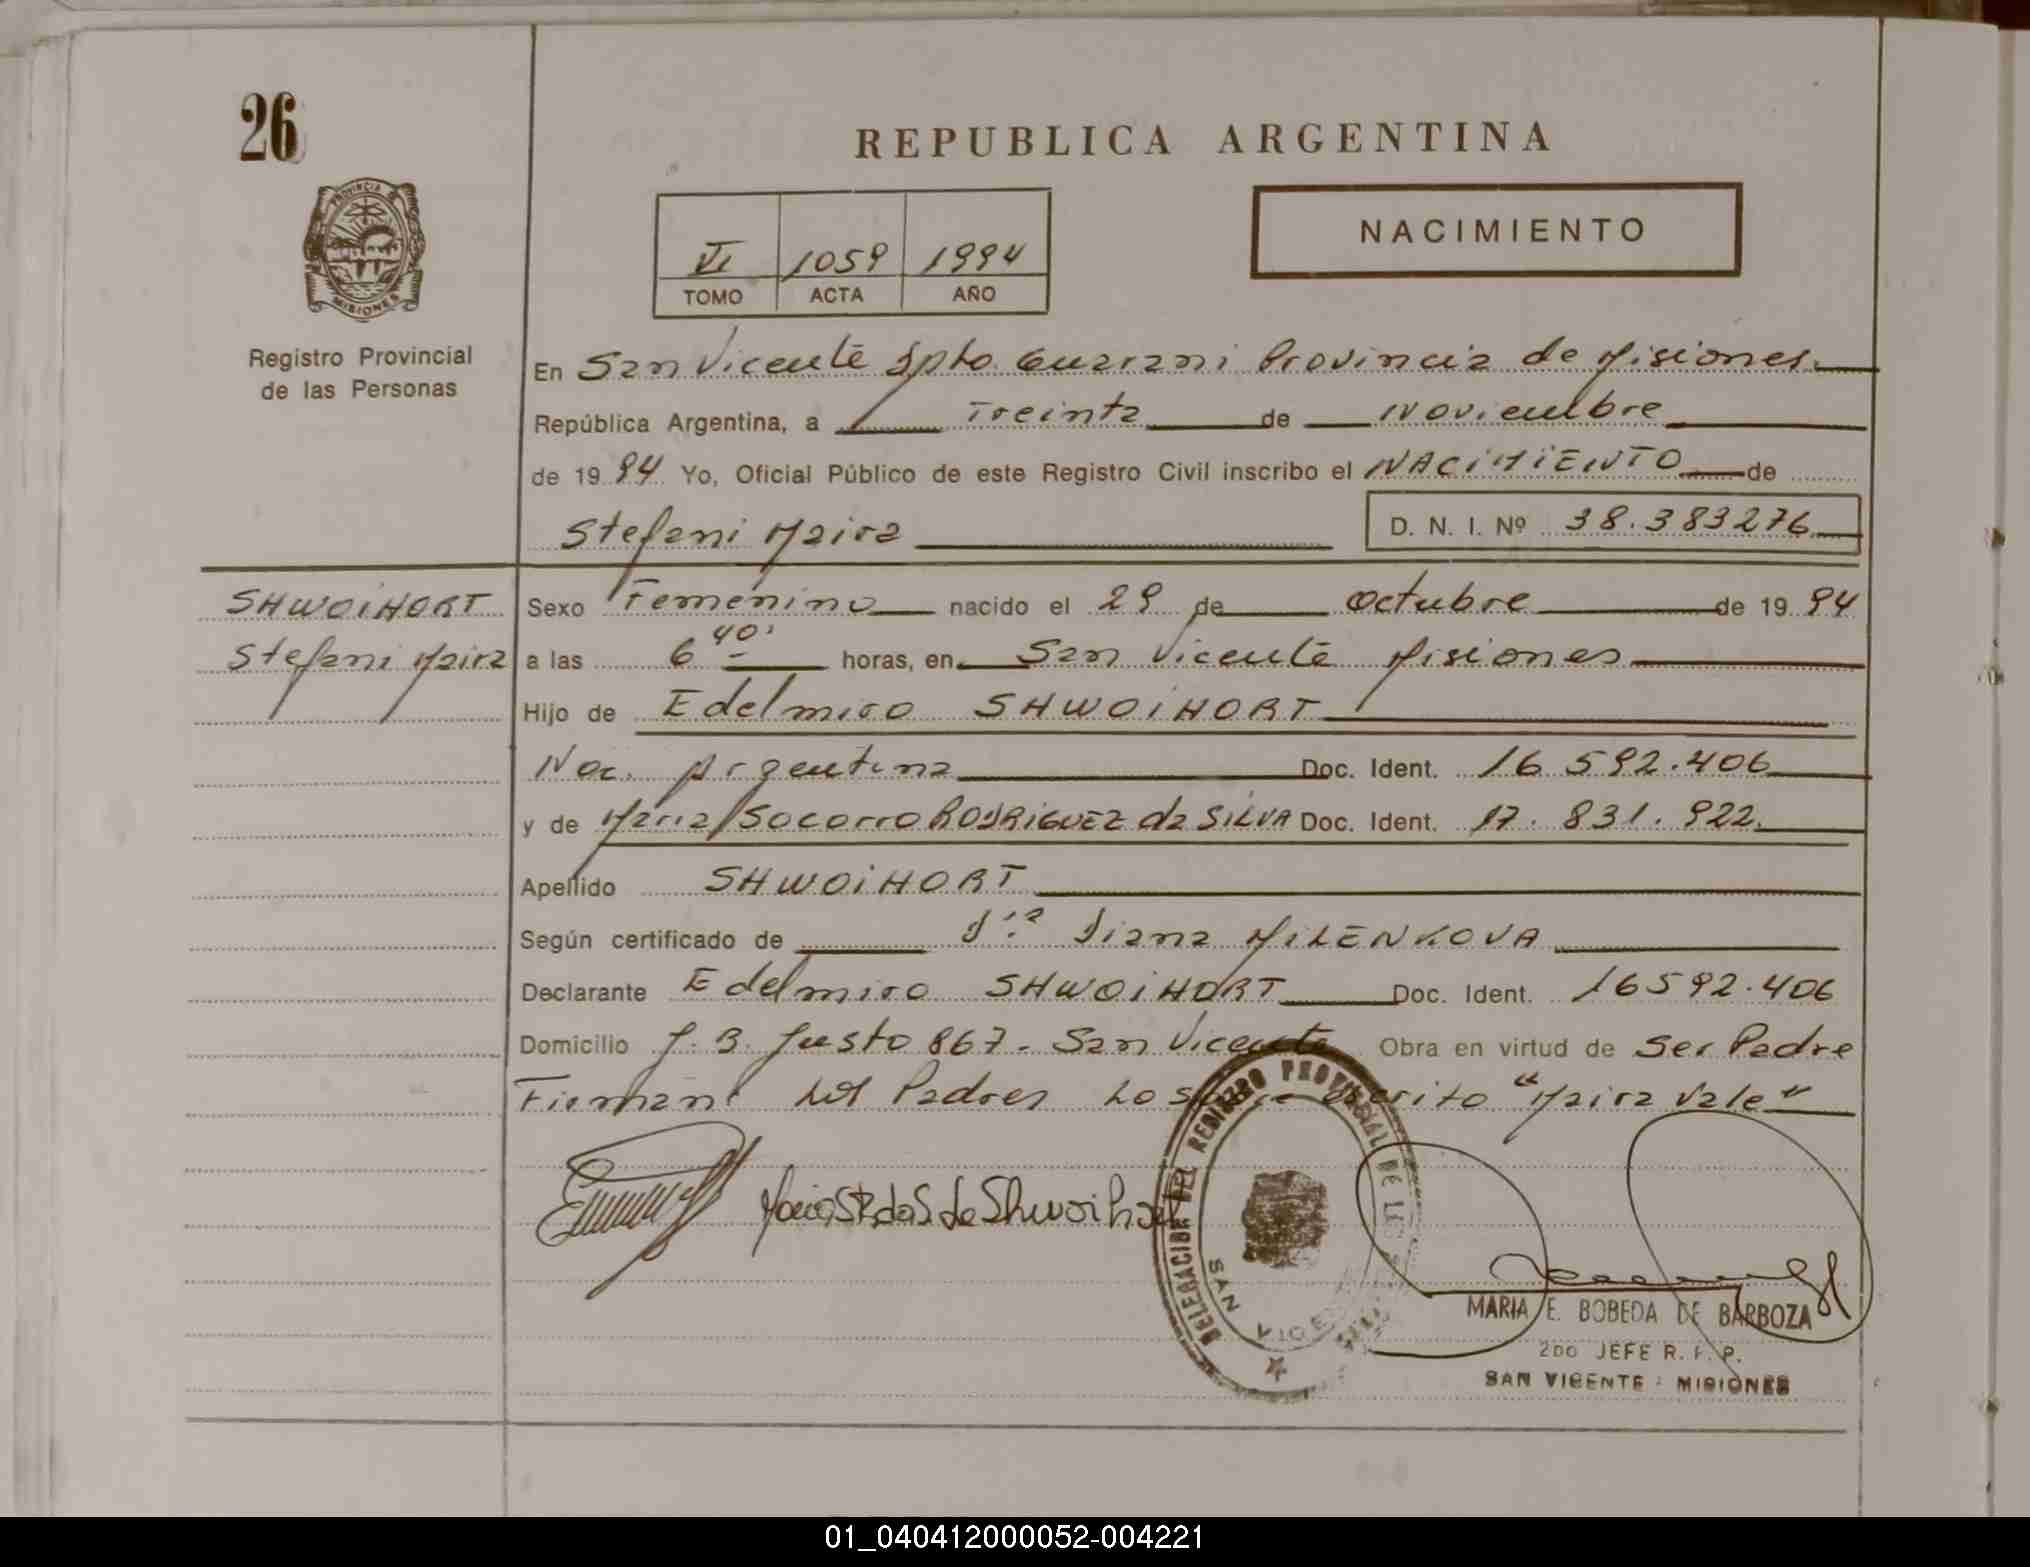 26
REPUBLICA ARGENTINA
PROVINCIA DE
MISIONES
VI 1059 1994
TOMO ACTA AÑO
NACIMIENTO
Registro Provincial
de las Personas
En San Vicente Dpto. Guarani Provincia de Misiones.
República Argentina, a Treinta de Noviembre
de 19 94 Yo, Oficial Público de este Registro Civil inscribo el NACIMIENTO de
Stefani Maira D. N. I. Nº 38.383276
SHWOIHORT
Stefani Maira
Sexo Femenino nacido el 29 de Octubre de 19 94
a las 6 40' horas, en San Vicente Misiones
Hijo de Edelmiro SHWOIHORT
Nac. Argentina Doc. Ident. 16 592.406
y de Maria Socorro RODRIGUEZ da SILVA Doc. Ident. 17.831.922.
Apellido SHWOIHORT
Según certificado de Dra Diana MILENKOVA
Declarante Edelmiro SHWOIHORT Doc. Ident. 16592.406
Domicilio J. B. Justo 867 - San Vicente Obra en virtud de ser Padre
Firman los Padres Lo sobre escrito "Maira Vale"
DELEGACION DEL REGISTRO PROVINCIAL DE LAS
SAN VICENTE
MARIA E. BOBEDA DE BARBOZA
2DO JEFE R. P. P.
SAN VICENTE - MISIONES
01_040412000052-004221